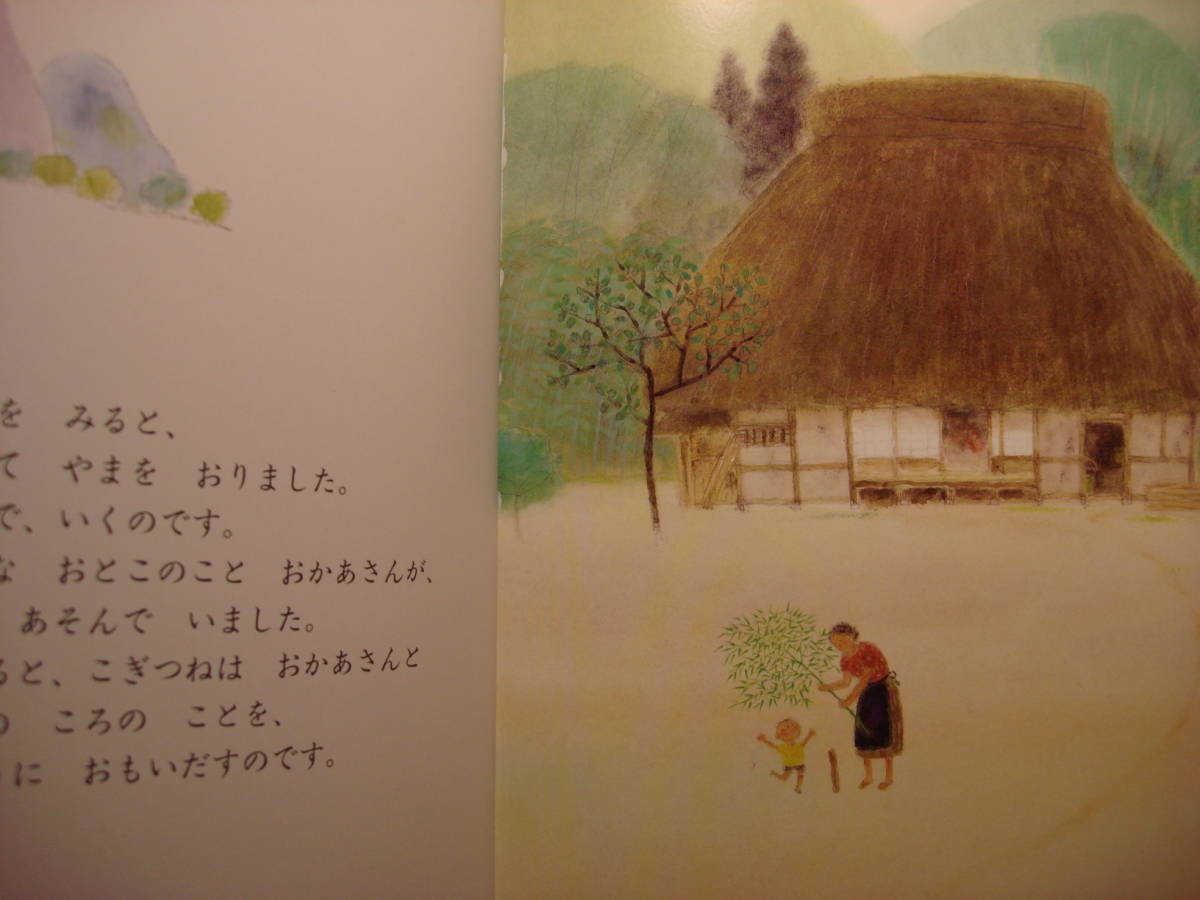 を みると、
て やまを おりました。
で、いくのです。
な おとこのこと おかあさんが、
あそんで いました。
ると、こぎつねは おかあさんと
の ころの ことを、
うに おもいだすのです。